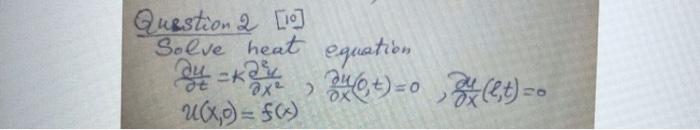 Question 2 [10]
Solve heat equation
∂u/∂t = K ∂²u/∂x² , ∂u/∂x(0,t)=0 , ∂u/∂x(l,t)=0
u(x,0) = f(x)